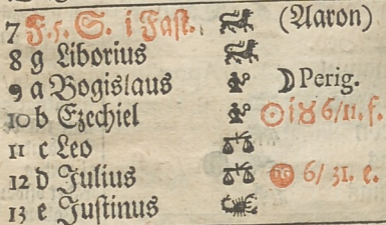 7 F. 5. S. i Fast. (Aaron)
8 g Liborius
9 a Bogislaus ☽ Perig.
10 b Ezechiel ☉ i ♉ 6/11. f.
11 c Leo
12 d Julius 6/31. e.
13 e Justinus